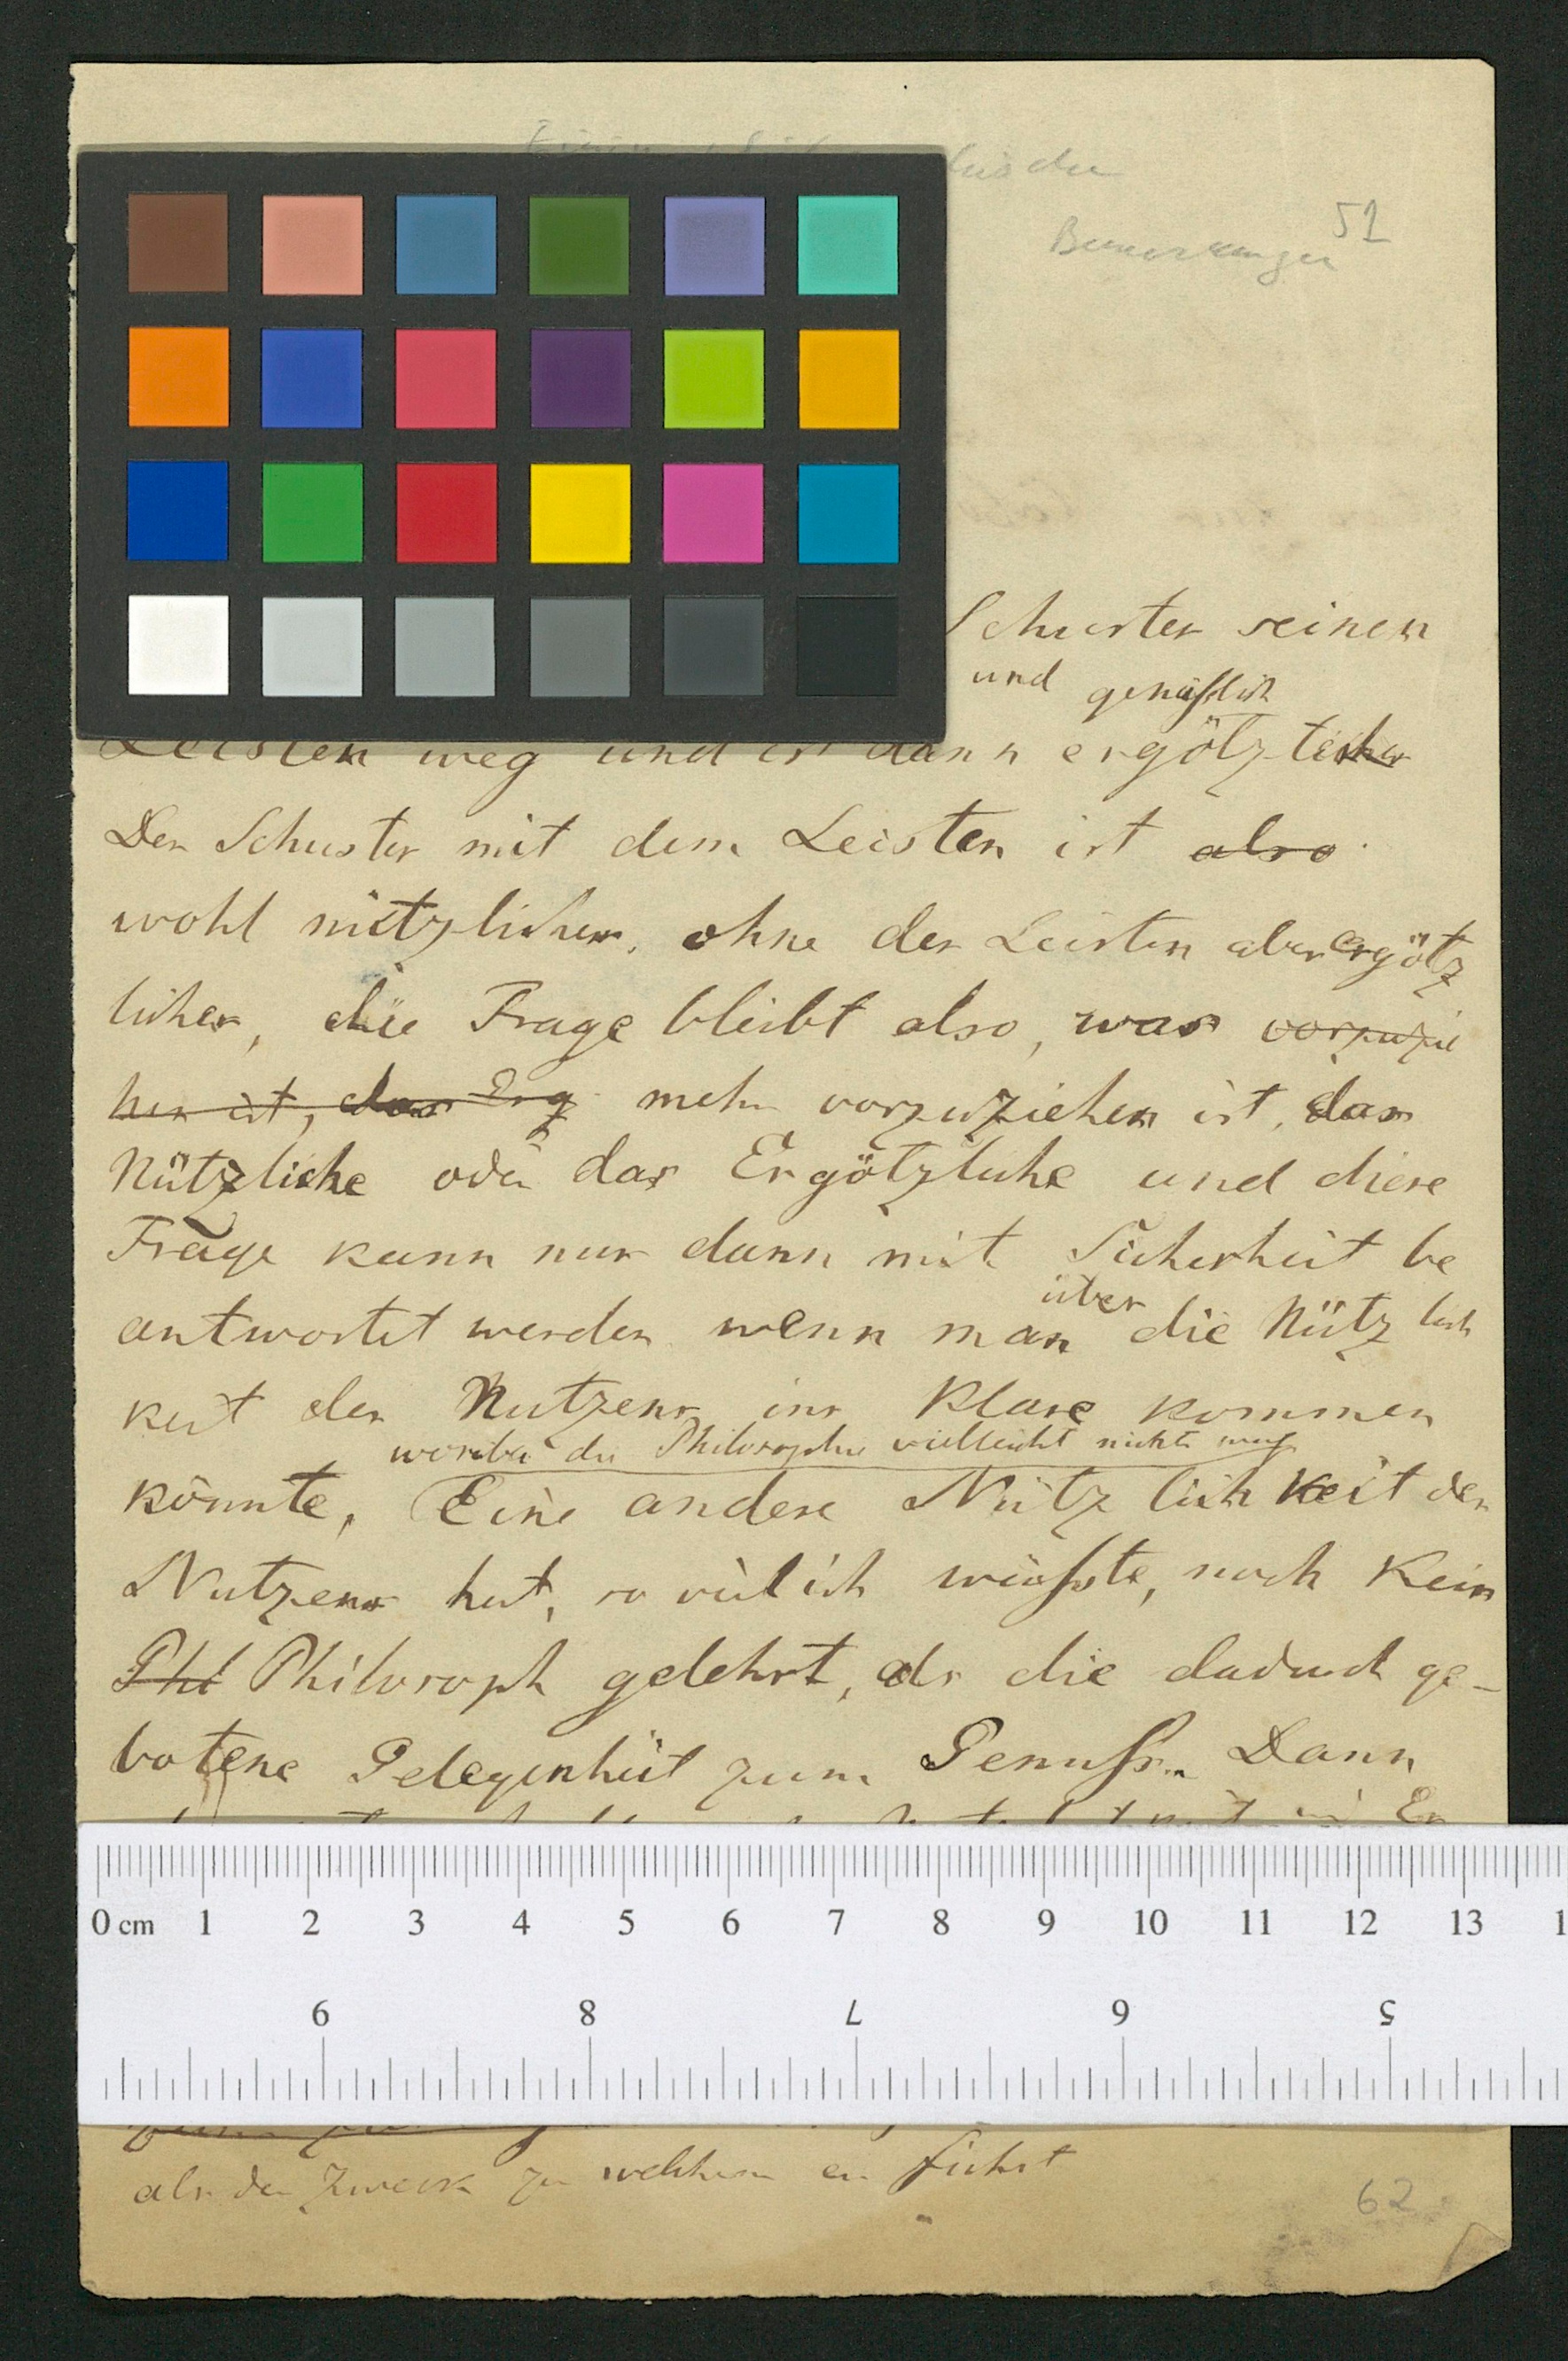 51
Bemerkungen
Schuster seinen
und genüßlich
Leisten weg und ist dann ergötzlicher
Der Schuster mit dem Leisten ist also
wohl nützlicher, ohne den Leisten aber ergötz
licher, die Frage bleibt also, was vorzuzie
hen ist, das Erg mehr vorzuziehen ist, das
Nützliche oder das Ergötzliche und diese
Frage kann nur dann mit Sicherheit be
über
antwortet werden wenn man die Nützlich
keit des Nutzens ins Klare kommen
worüber die Philosophie vielleicht nichts
könnte, Eine andere Nützlichkeit des
Nutzens hat, so viel ich wüsste, noch kein
Phl Philosoph gelehrt, als die dadurch ge-
botene Gelegenheit zum Genuss. Dann
0 cm 1 2 3 4 5 6 7 8 9 10 11 12 13 1
9 8 7 6 5
als der Zweck zu welchem er führt
62